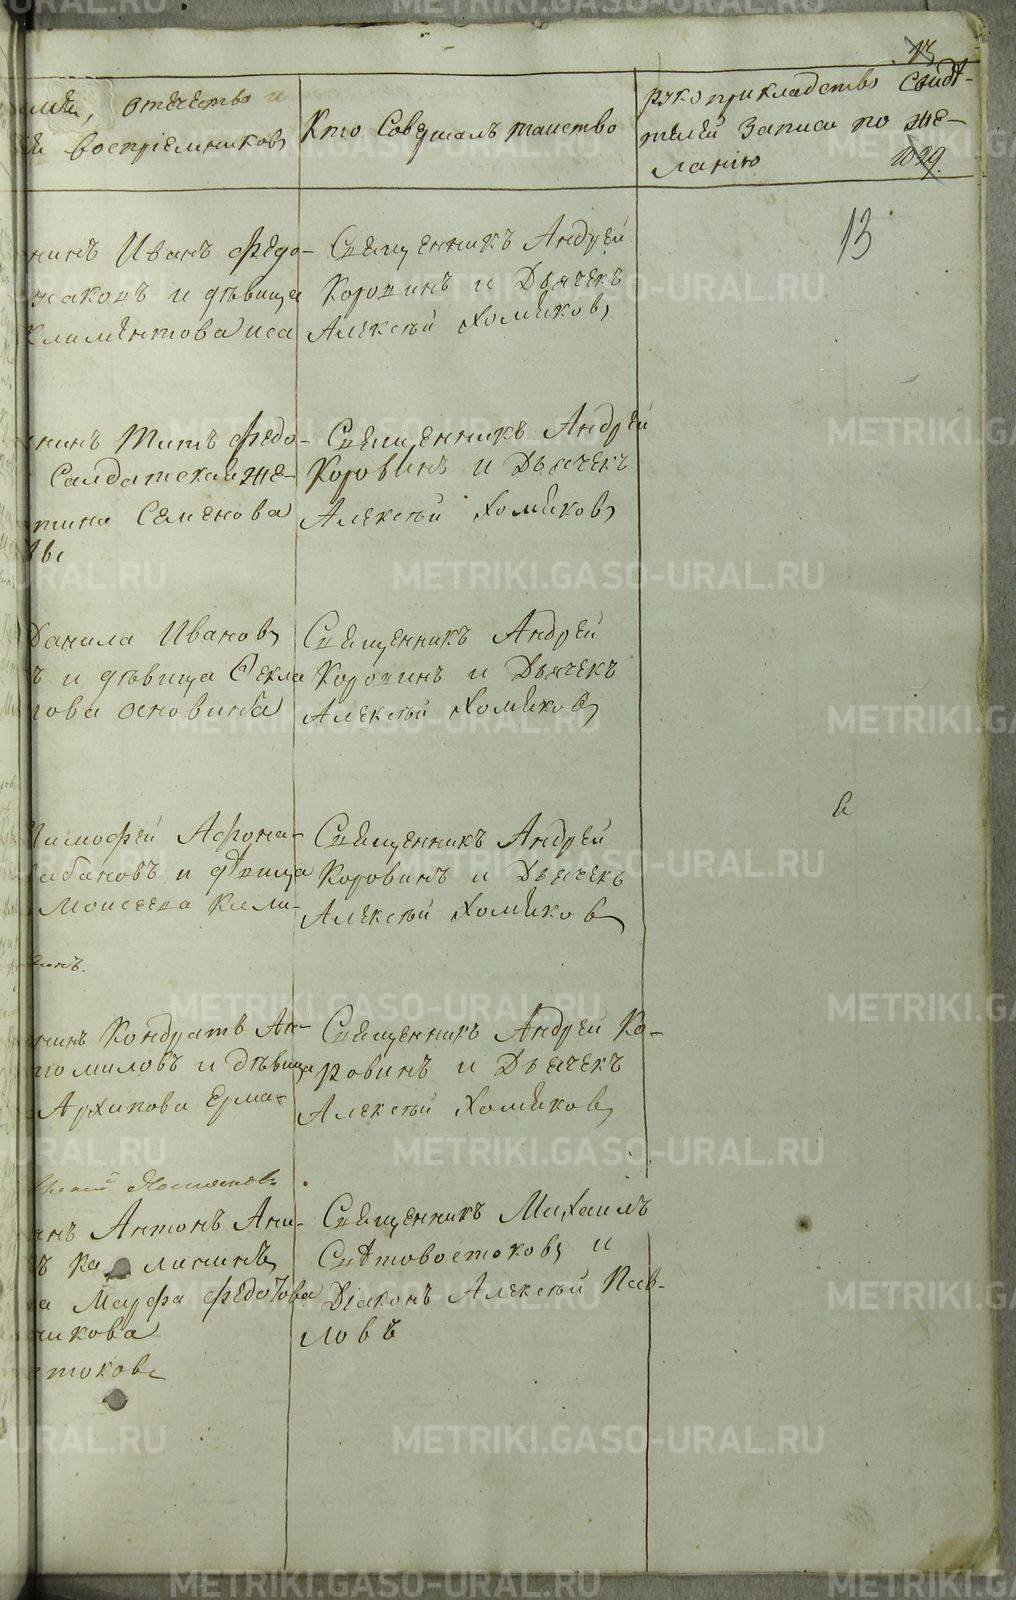 13
имѧ, отечество и
восприемниковъ
Кто Совершалъ таинство
рукоприкладство Свидѣ-
телей Записи по же-
ланiю
1029.
13
нинъ Иванъ Федо-
и дѣвица
Климентова
Священникъ Андрей
Коровинъ и Дьячекъ
Алексѣй Хомяковъ
нинъ Титъ Федо-
Салдатская же-
Семенова
Священникъ Андрей
Коровинъ и Дьячекъ
Алексѣй Хомяковъ
Данила Ивановъ
ъ и дѣвица Ѳекла
Основина
Священникъ Андрей
Коровинъ и Дьячекъ
Алексѣй Хомяковъ
Тимофей Афона-
абановъ и дѣвица
Моисеева
Священникъ Андрей
Коровинъ и Дьячекъ
Алексѣй Хомяковъ
нинъ Кондратъ Ан-
томиловъ и дѣвица
Архипова Ерма-
Священникъ Андрей Ко-
ровинъ и Дьячекъ
Алексѣй Хомяковъ
нинъ Антонъ Ани-
ъ Калининъ
Марфа Федотова
никова
стоковъ
Священникъ Михаилъ
Свѣтовостоковъ и
Дiаконъ Алексѣй Пав-
ловъ
METRIKI.GASO-URAL.RU